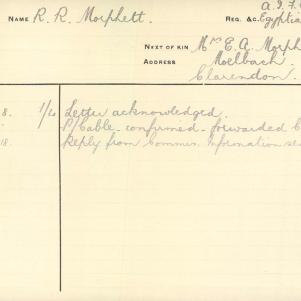 NAME R. R. Morphett.
REG. &C. A. I. F.
Egyptia
NEXT OF KIN Mrs E. A. Morph
ADDRESS Moelbach
Clarendon
8. 1/20 Letter acknowledged.
P/Cable confirmed - forwarded C
18. Reply from Commrs. Information se